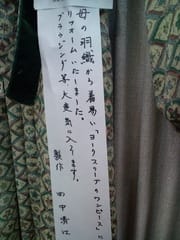 母の羽織から着易い「ヨークスリーブのワンピース」に
リフォームいたしました。
ブラウジング等大変気に入ってます。
製作 田中清江